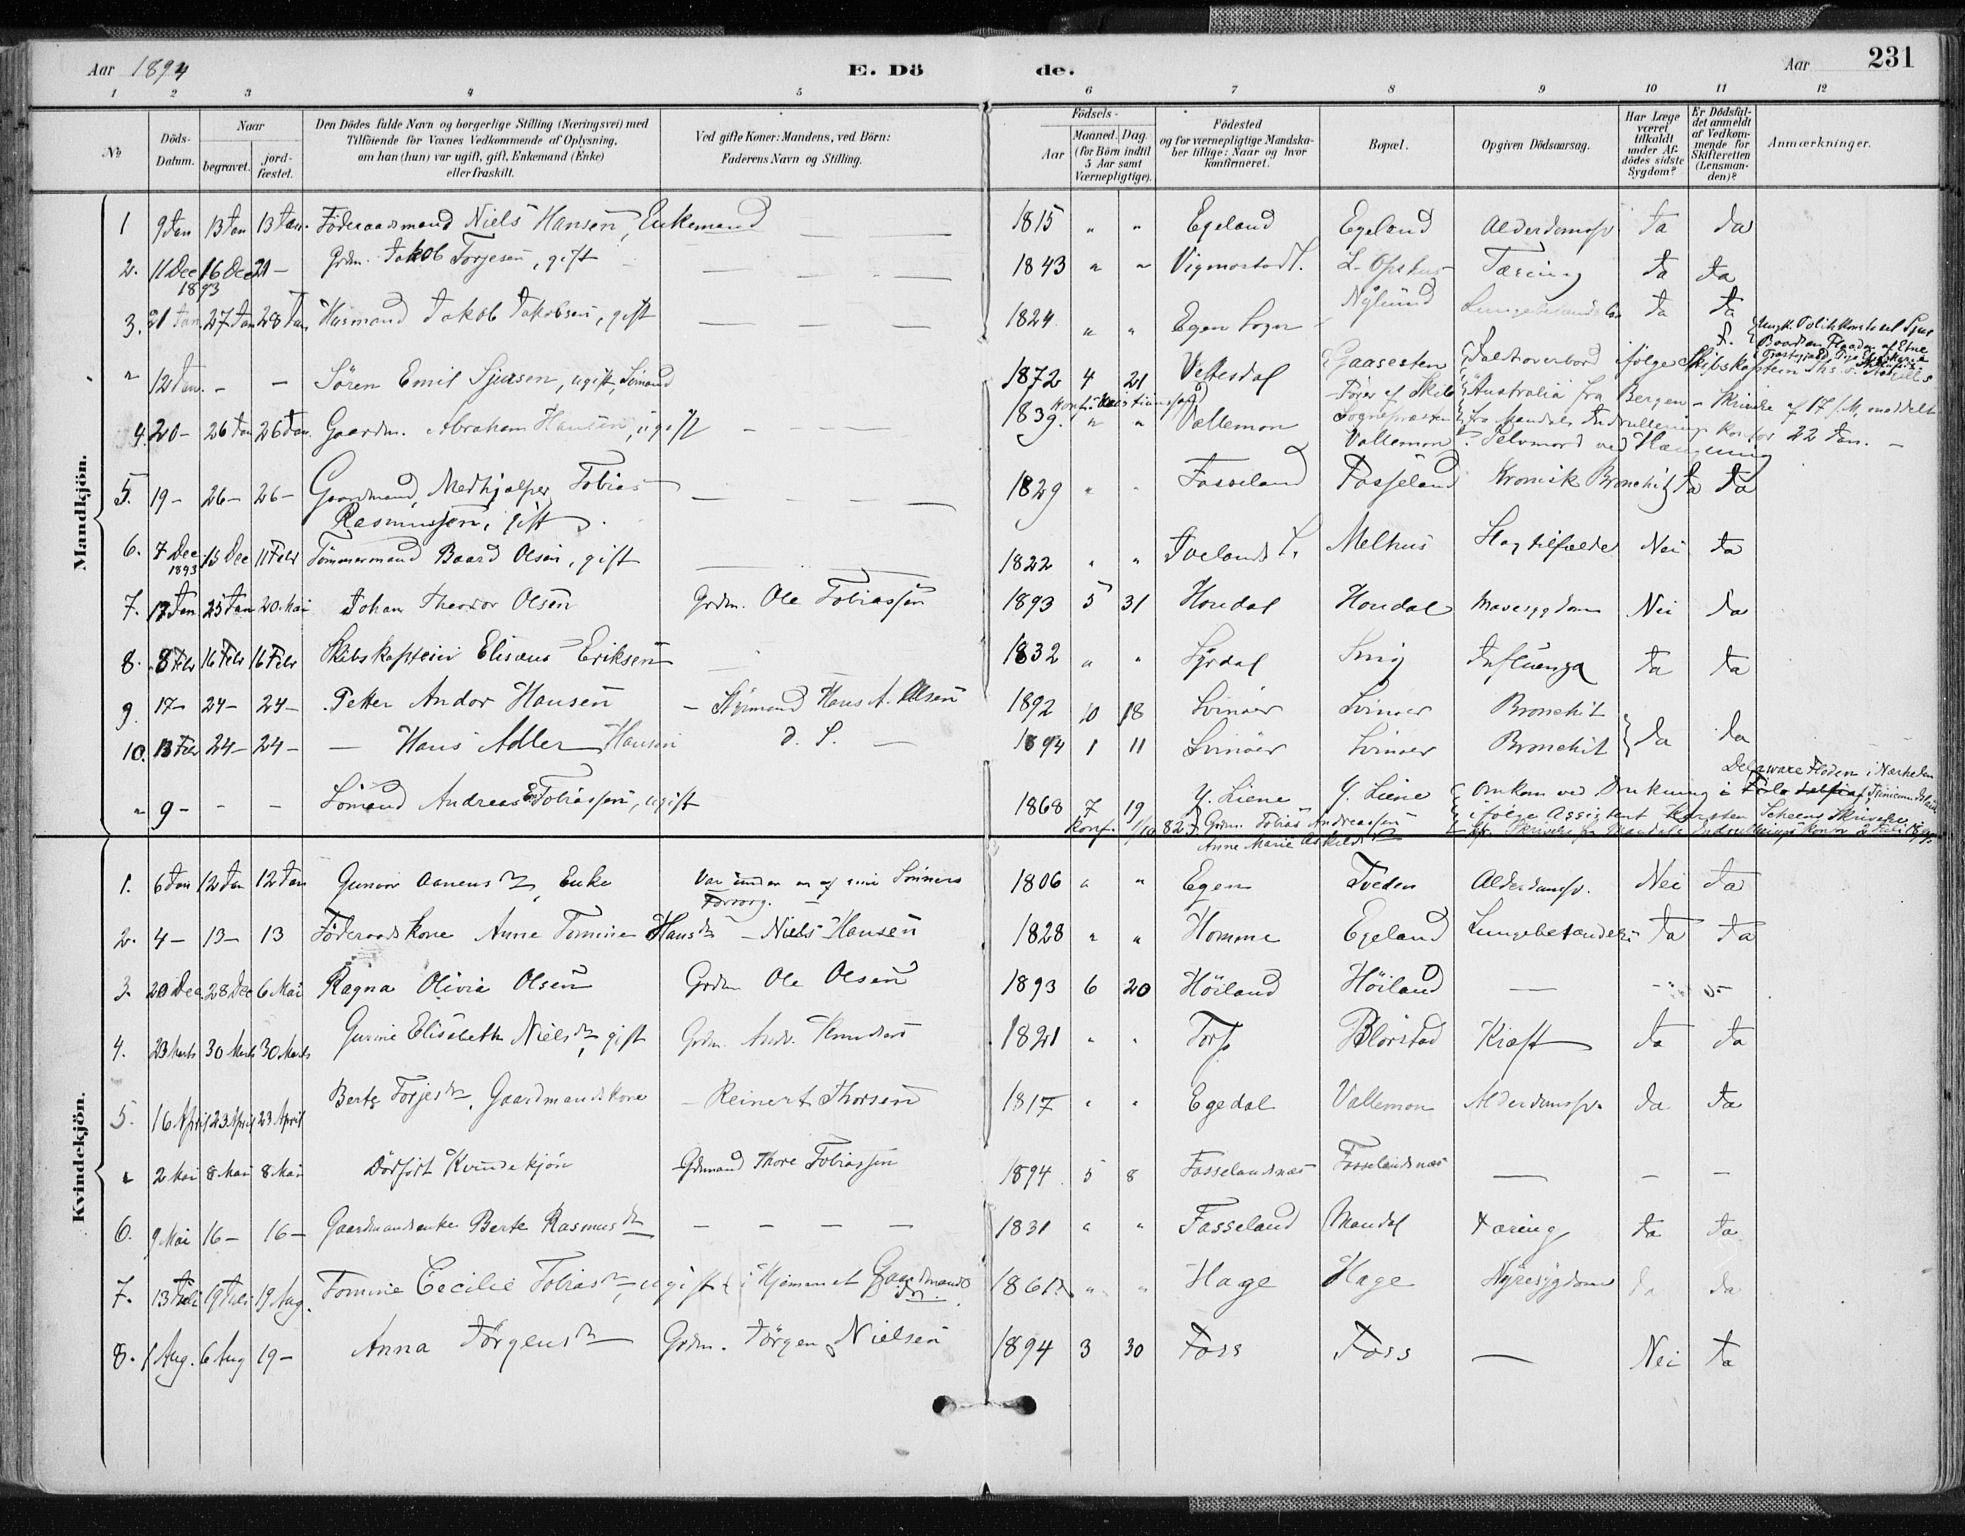 Aar 1894
E. Döde.
Aar 231
1 2 3 4 5 6 7 8 9 10 11 12
No
Döds-Datum.
Naar
begravet.
jordfæstet.
Den Dödes fulde Navn og borgerlige Stilling (Næringsvei) med
Tilföiende for Voxnes Vedkommende af Oplysning,
om han (hun) var ugift, gift, Enkemand (Enke)
eller fraskilt.
Ved gifte Koner: Mandens, ved Börn:
Faderens Navn og Stilling.
Födsels-
Aar
Maaned. Dag.
(for Börn indtil
5 Aar samt
Værnepligtige).
Födested
og for værnepligtige Mandska-
ber tillige: Naar og hvor
konfirmeret.
Bopæl.
Opgiven Dödsaarsag.
Har Læge
været
tilkaldt
under Af-
dödes sidste
Sygdom?
Er Dödsfal-
det anmeldt
af Vedkom-
mende for
Skifteretten
(Lensman-
den)?
Anmærkninger.
Mandkjön.
1 9 Jan 13 Jan 13 Jan. Föderaadsmand Niels Hansen, Enkemand 1815 " " Egeland Egeland Alderdomssv Ja Ja
2. 11 Dec 1893 16 Dec 21 — Grdm. Jakob Torjesen, gift 1843 " " Vigmostad S. L. Opshus Tæring Ja Ja
3. 21 Jan 27 Jan 28 Jan Husmand Jakob Jakobsen, gift 1824 " " Egen Sogn Nylund Lungebetændelse Ja Ja
" 12 Jan. — — Sören Emil Sjursen, ugift, Sömand 1872 4 21 Vettesdal Gaasesten Faldt overbord ifölge Skibskaptein
Förer af Skib "Australia" fra Bergen — Skrivelse af 17/1 meddelt
fra Mandals Indrullerings Kontor 22 Jan. —
4. 20 — 26 Jan 26 Jan. Gaardm. Abraham Hansen, ugift 1839. " " Vallemon Vallemon Selvmord ved Hængning
5. 19 — 26 — 26 — Gaardmand, Medhjælper Tobias
Rasmussen, gift 1829 " " Fasseland Fasseland Kronisk Bronchit Ja Ja
6. 7 Dec. 1893 15 Dec 11 Febr Tömmermand Baard Olsen, gift 1822 " " Ivelands S. Melhus Slagtilfælde Nei Ja
7. 17 Jan 25 Jan 20 Mai Johan Theodor Olsen Grdm. Ole Tobiassen 1893 5 31 Houdal Houdal Mavesygdom Nei Ja
8. 8 Febr 16 Febr 16 Febr Skibskaptein Elisæus Eriksen 1832 " " Lyrdal Snig Influenza Ja Ja
9. 17 — 24 — 24 — Petter Andor Hansen — Styrmand Hans A. Olsen 1892 10 18 Svinöer Svinöer Bronchit
10. 13 Febr 24 — 24 — — Hans Adler Hansen d. S. — 1894 1 11 Svinöer Svinöer Bronchit Ja Ja
" 9 — - - Sömand Andreas Tobiassen, ugift 1868 7 19 Y. Liene Y. Liene Omkom ved Drukning i Delaware Floden i Nærheden
konf. 1/10 82. Grdm. Tobias Andreassen ifölge Assistent Karsten Scheens Skrivelse
Anne Marie Askildsdtr
Kvindekjön.
1. 6 Jan 12 Jan 12 Jan Gunvor Aanensdtr, Enke Var under en af sine Sönners
Forsorg. 1806 " " Egen Tveden Alderdomssv. Nei Ja
2. 4 — 13 — 13 Föderaadskone Anne Tomine Hansdtr — Niels Hansen 1828 " " Homme Egeland Lungebetændelse Ja Ja
3. 20 Dec. 28 Dec 6 Mai Ragna Olivia Olsen Grdm Ole Olsen 1893 6 20 Höiland Höiland — — —
4. 23 Marts 30 Marts 30 Marts Gurine Elisabeth Nielsdtr, gift Grdm. Andr. Knudsen 1821 " " Torp Blörstad Kræft Ja Ja
5. 16 April 23 April 23 April Berte Torjesdtr, Gaardmandskone — Reinert Thorsen 1817 " " Egedal Vallemon Alderdomssv. Ja Ja
" 2 Mai 8 Mai 8 Mai Dödfödt Kvindekjön Grdmand Thore Tobiassen 1894 5 8 Fasselandsnæs Fasselandsnæs — — —
6. 9 Mai 16 — 16 — Gaardmandsenke Berte Rasmusdtr — — — — 1831 " " Fasseland Mandal Tæring Ja Ja
7. 13 Juli 19 Juli 19 Aug. Tomine Cecilie Tobiasdtr, ugift i Hjemmet Gaardmands 1861 " " Hage Hage Nyresygdom Ja Ja
8. 1 Aug. 6 Aug 19 — Anna Jörgensdtr Grdm. Jörgen Nielsen 1894 3 30 Foss Foss — Nei Ja